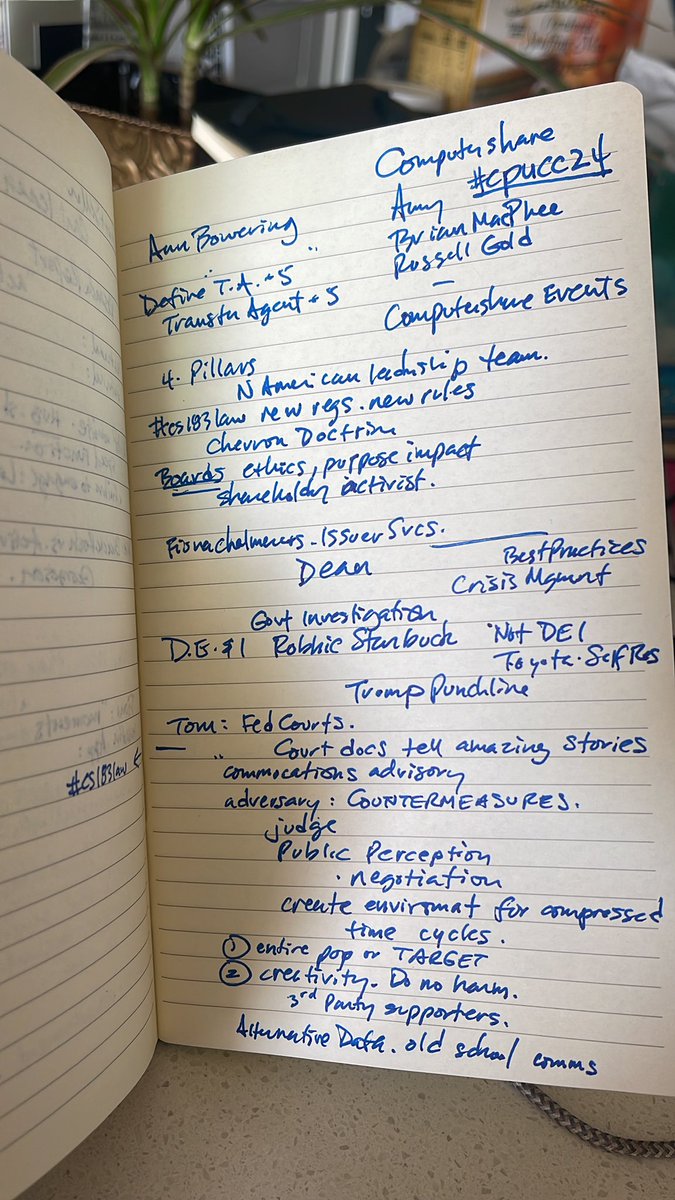 Computershare
#cpucc24
Amy
Ann Bowering
Brian MacPhee
Russell Gold
Define "T.A.+S"
Transfer Agent + S
Computershare Events
4. Pillars
N American leadership team.
#cs183law new regs. new rules
Chevron Doctrine
Boards ethics, purpose impact
shareholder activist.
Fiona Chalmers - Issuer Svcs.
Dean
Best Practices
Crisis Mgmnt
Govt Investigation
D.E.&I Robbie Starbuck "Not DEI
Toyota.
Trump Punchline
Tom: Fed Courts.
Court docs tell amazing stories
commocations advisory
adversary: COUNTERMEASURES.
judge
Public Perception
· negotiation
create enviromat for compressed
time cycles.
① entire pop or TARGET
② creativity. Do no harm.
3rd Party supporters.
Alternative Data. old school comms
#cs183law